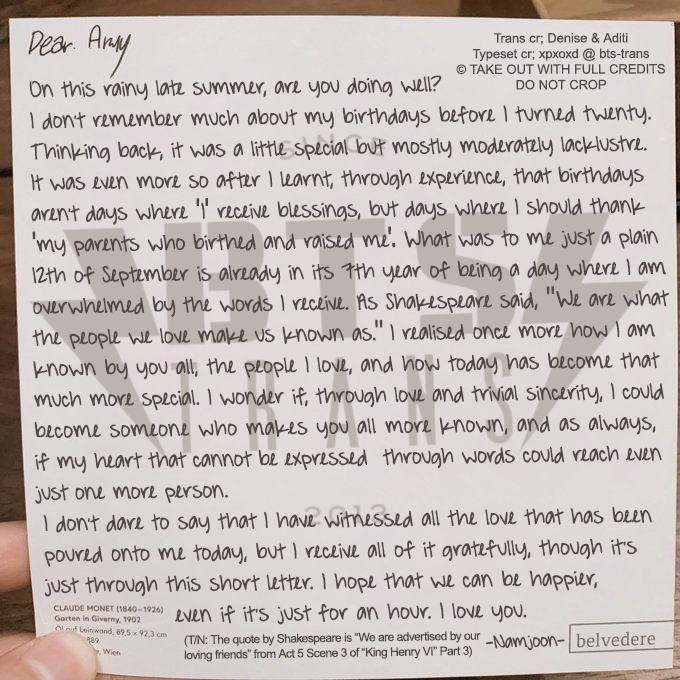 Dear. Army
Trans cr; Denise & Aditi
Typeset cr; xpxoxd @ bts-trans
© TAKE OUT WITH FULL CREDITS
DO NOT CROP
On this rainy late summer, are you doing well?
I don't remember much about my birthdays before I turned twenty.
Thinking back, it was a little special but mostly moderately lacklustre.
It was even more so after I learnt, through experience, that birthdays
aren't days where 'I' receive blessings, but days where I should thank
'my parents who birthed and raised me'. What was to me just a plain
12th of September is already in its 7th year of being a day where I am
overwhelmed by the words I receive. As Shakespeare said, "We are what
the people we love make us known as." I realised once more how I am
known by you all, the people I love, and how today has become that
much more special. I wonder if, through love and trivial sincerity, I could
become someone who makes you all more known, and as always,
if my heart that cannot be expressed through words could reach even
just one more person.
I don't dare to say that I have witnessed all the love that has been
poured onto me today, but I receive all of it gratefully, though it's
just through this short letter. I hope that we can be happier,
even if it's just for an hour. I love you.
-Namjoon-
CLAUDE MONET (1840–1926)
Garten in Giverny, 1902
Öl auf Leinwand, 89,5 × 92,3 cm
889
, Wien
(T/N: The quote by Shakespeare is "We are advertised by our
loving friends" from Act 5 Scene 3 of "King Henry VI" Part 3)
belvedere
SINCE
BTS
TRANS
2013